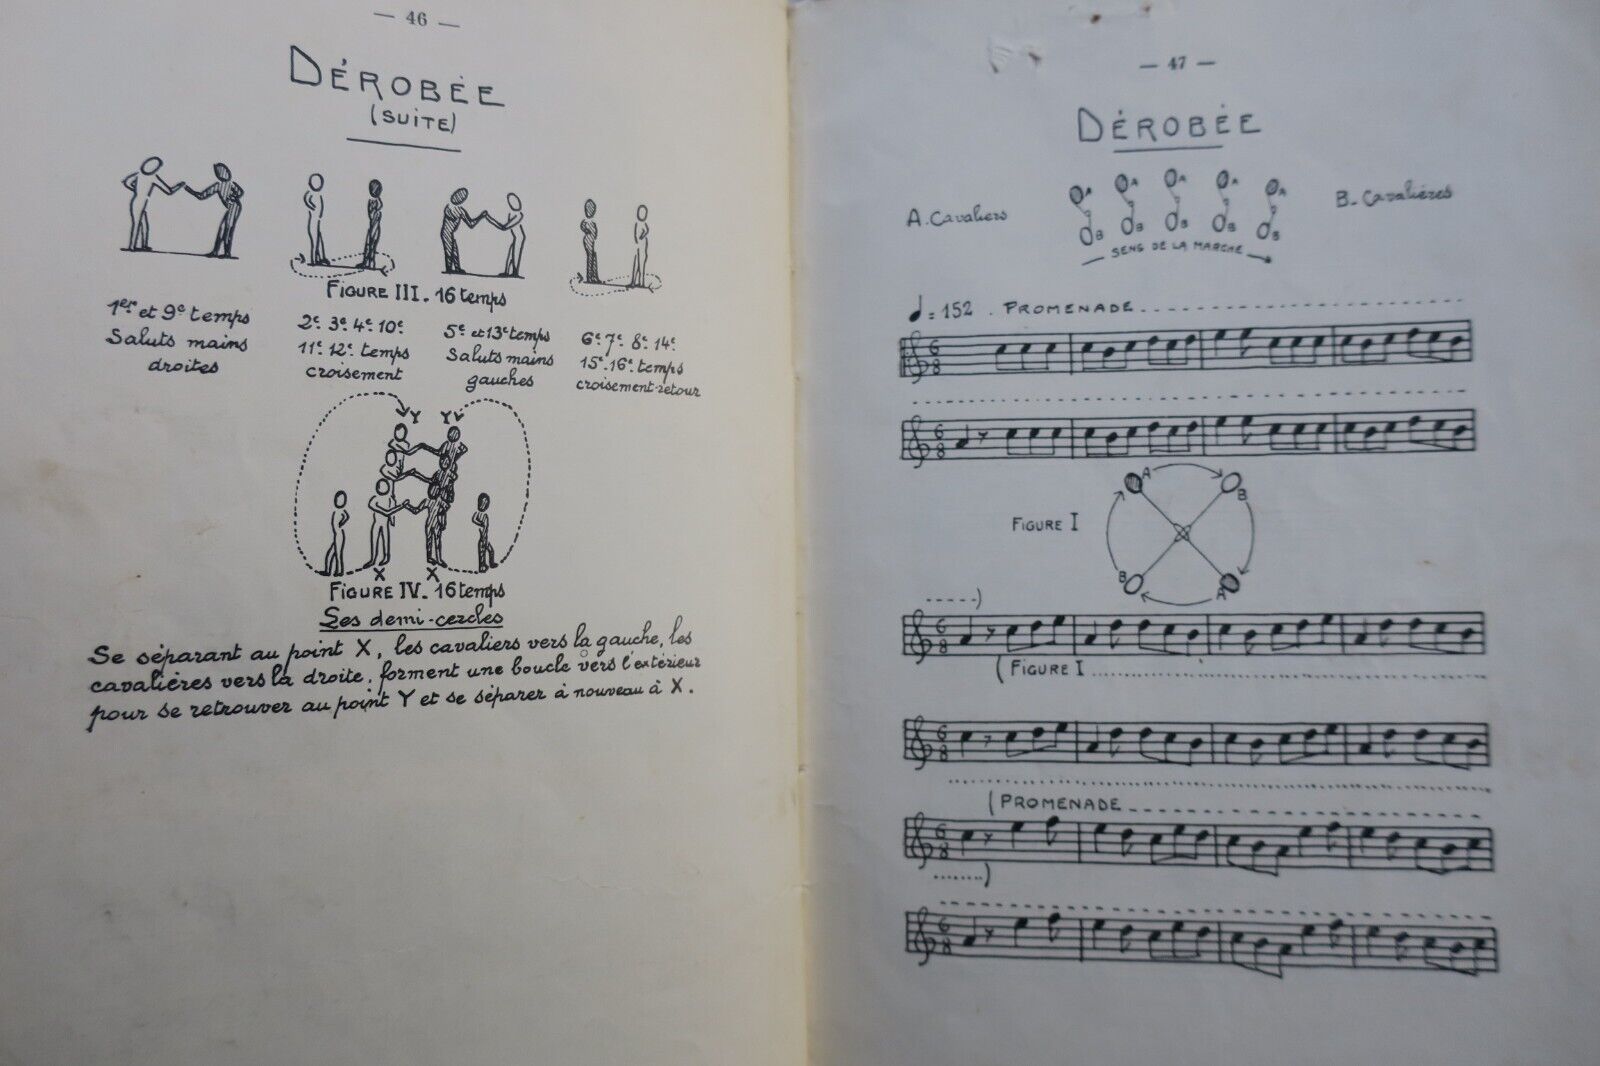 — 46 —
DÉROBÉE
(SUITE)
FIGURE III. 16 temps
1er et 9e temps
Saluts mains
droites
2e. 3e. 4e. 10e.
11e. 12e. temps
croisement
5e et 13e temps
Saluts mains
gauches
6e. 7e. 8e. 14e.
15e. 16e. temps
croisement-retour
Y Y
X X
FIGURE IV. 16 temps
Les demi-cercles
Se séparant au point X, les cavaliers vers la gauche, les
cavalières vers la droite, forment une boucle vers l'extérieur
pour se retrouver au point Y et se séparer à nouveau à X.
— 47 —
DÉROBÉE
A. Cavaliers
A A A A A
B B B B B
SENS DE LA MARCHE
B. Cavalières
♩ = 152. PROMENADE
6
8
6
8
FIGURE I
A B
B A
6
8
(FIGURE I
6
8
(PROMENADE
6
8
6
8